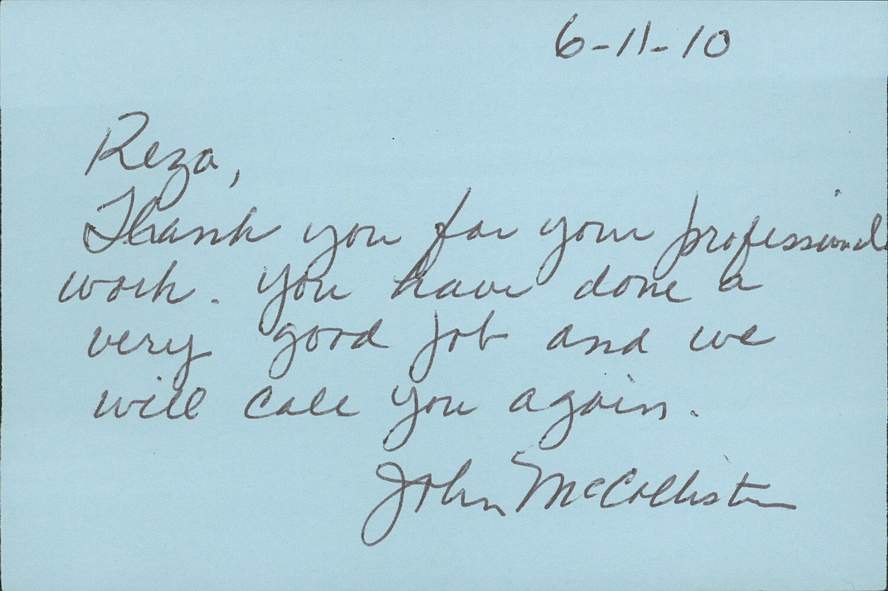 6-11-10
Reza,
Thank you for your professional
work. You have done a
very good job and we
will call you again.
John McCollister